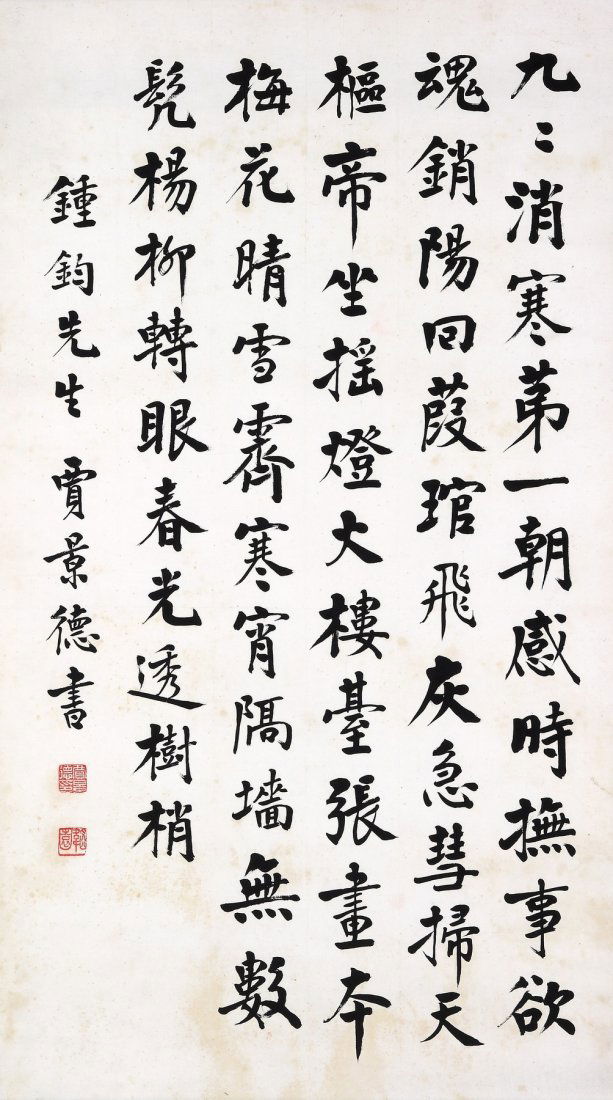 九〻消寒第一朝感時撫事欲
魂銷陽回葭琯飛灰急彗掃天
樞帝坐搖燈火樓臺張畫本
梅花晴雪霽寒宵隔墻無數
髠楊柳轉眼春光透樹梢
鍾鈞先生 賈景德書